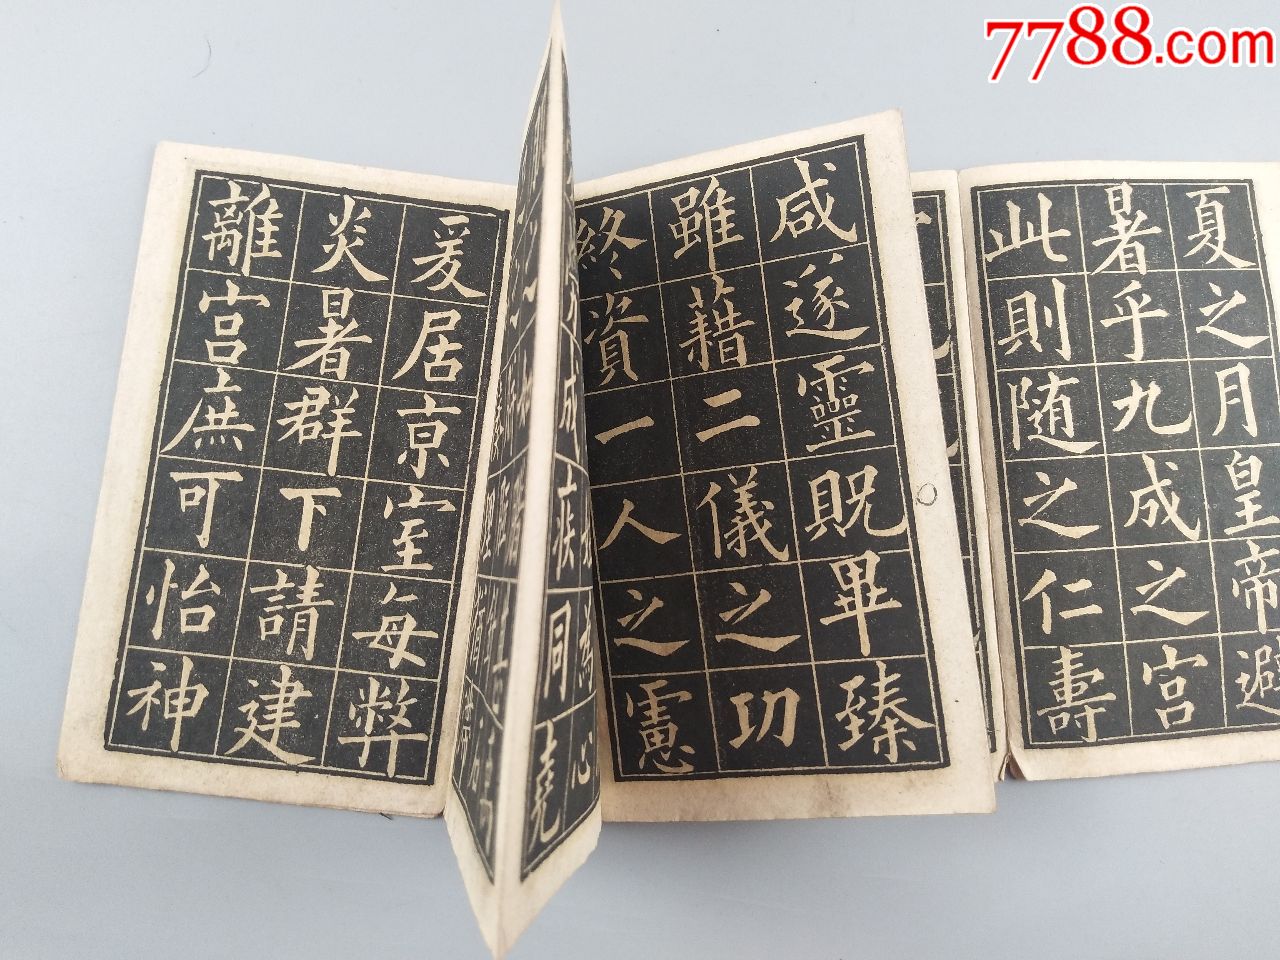 7788.com
夏之月皇帝避
暑乎九成之宫
此則随之仁壽
咸遂靈貺畢臻
雖藉二儀之功
終資一人之慮
為心
成疾同堯
爰居京室每弊
炎暑群下請建
離宫庶可怡神